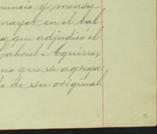 nuncio y mense
mayor en el bal
a que adjudicó el
Gabriel Aguirre,
no que se agrega
s de su original